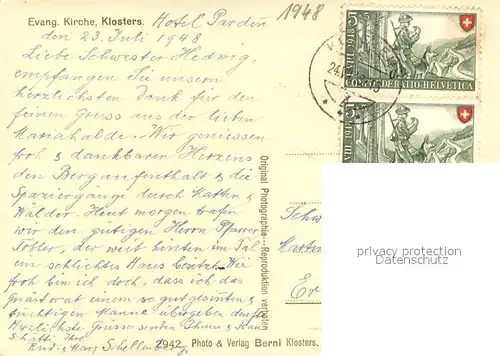 Evang. Kirche, Klosters. Hotel Pardenn
1948
den 23. Juli 1948
Liebe Schwester Hedwig,
empfangen Sie unsern
herzlichsten Dank für den
feinen Gruss aus der lieben
Mariahalde. Wir geniessen
froh & dankbaren Herzens
den Bergaufenthalt & die
Spaziergänge durch Matten &
Wälder. Heut morgen trafen
wir den gütigen Herrn Pfarrer
Tobler, der weit hinten im Tal
ein schlichtes Haus besitzt. Wie
froh bin ich doch, dass ich das
Quästorat einem so gutgesinnten &
tüchtigen Manne übergeben durfte.
Herzlichste Grüsse senden Ihnen & Frau
Ihre
Rud. & Marg. Schellenberg
2942 Photo & Verlag Berni Klosters.
Original Photographie — Reproduktion verboten
CONFOEDERATIO HELVETICA
5+5
VIII 1948
24.VII
privacy protection
Datenschutz
Schw
Er